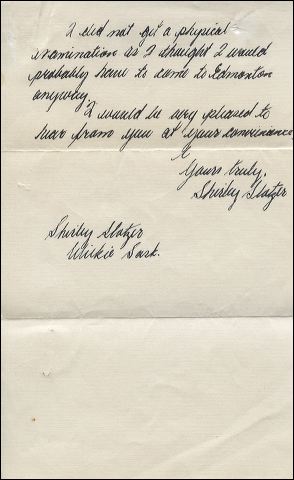 I did not get a physical
examination as I thought I would
probably have to come to Edmonton
anyway.
I would be very pleased to
hear from you at your convenience
Yours truly,
Shirley Slatzer
Shirley Slatzer
Wilkie Sask.